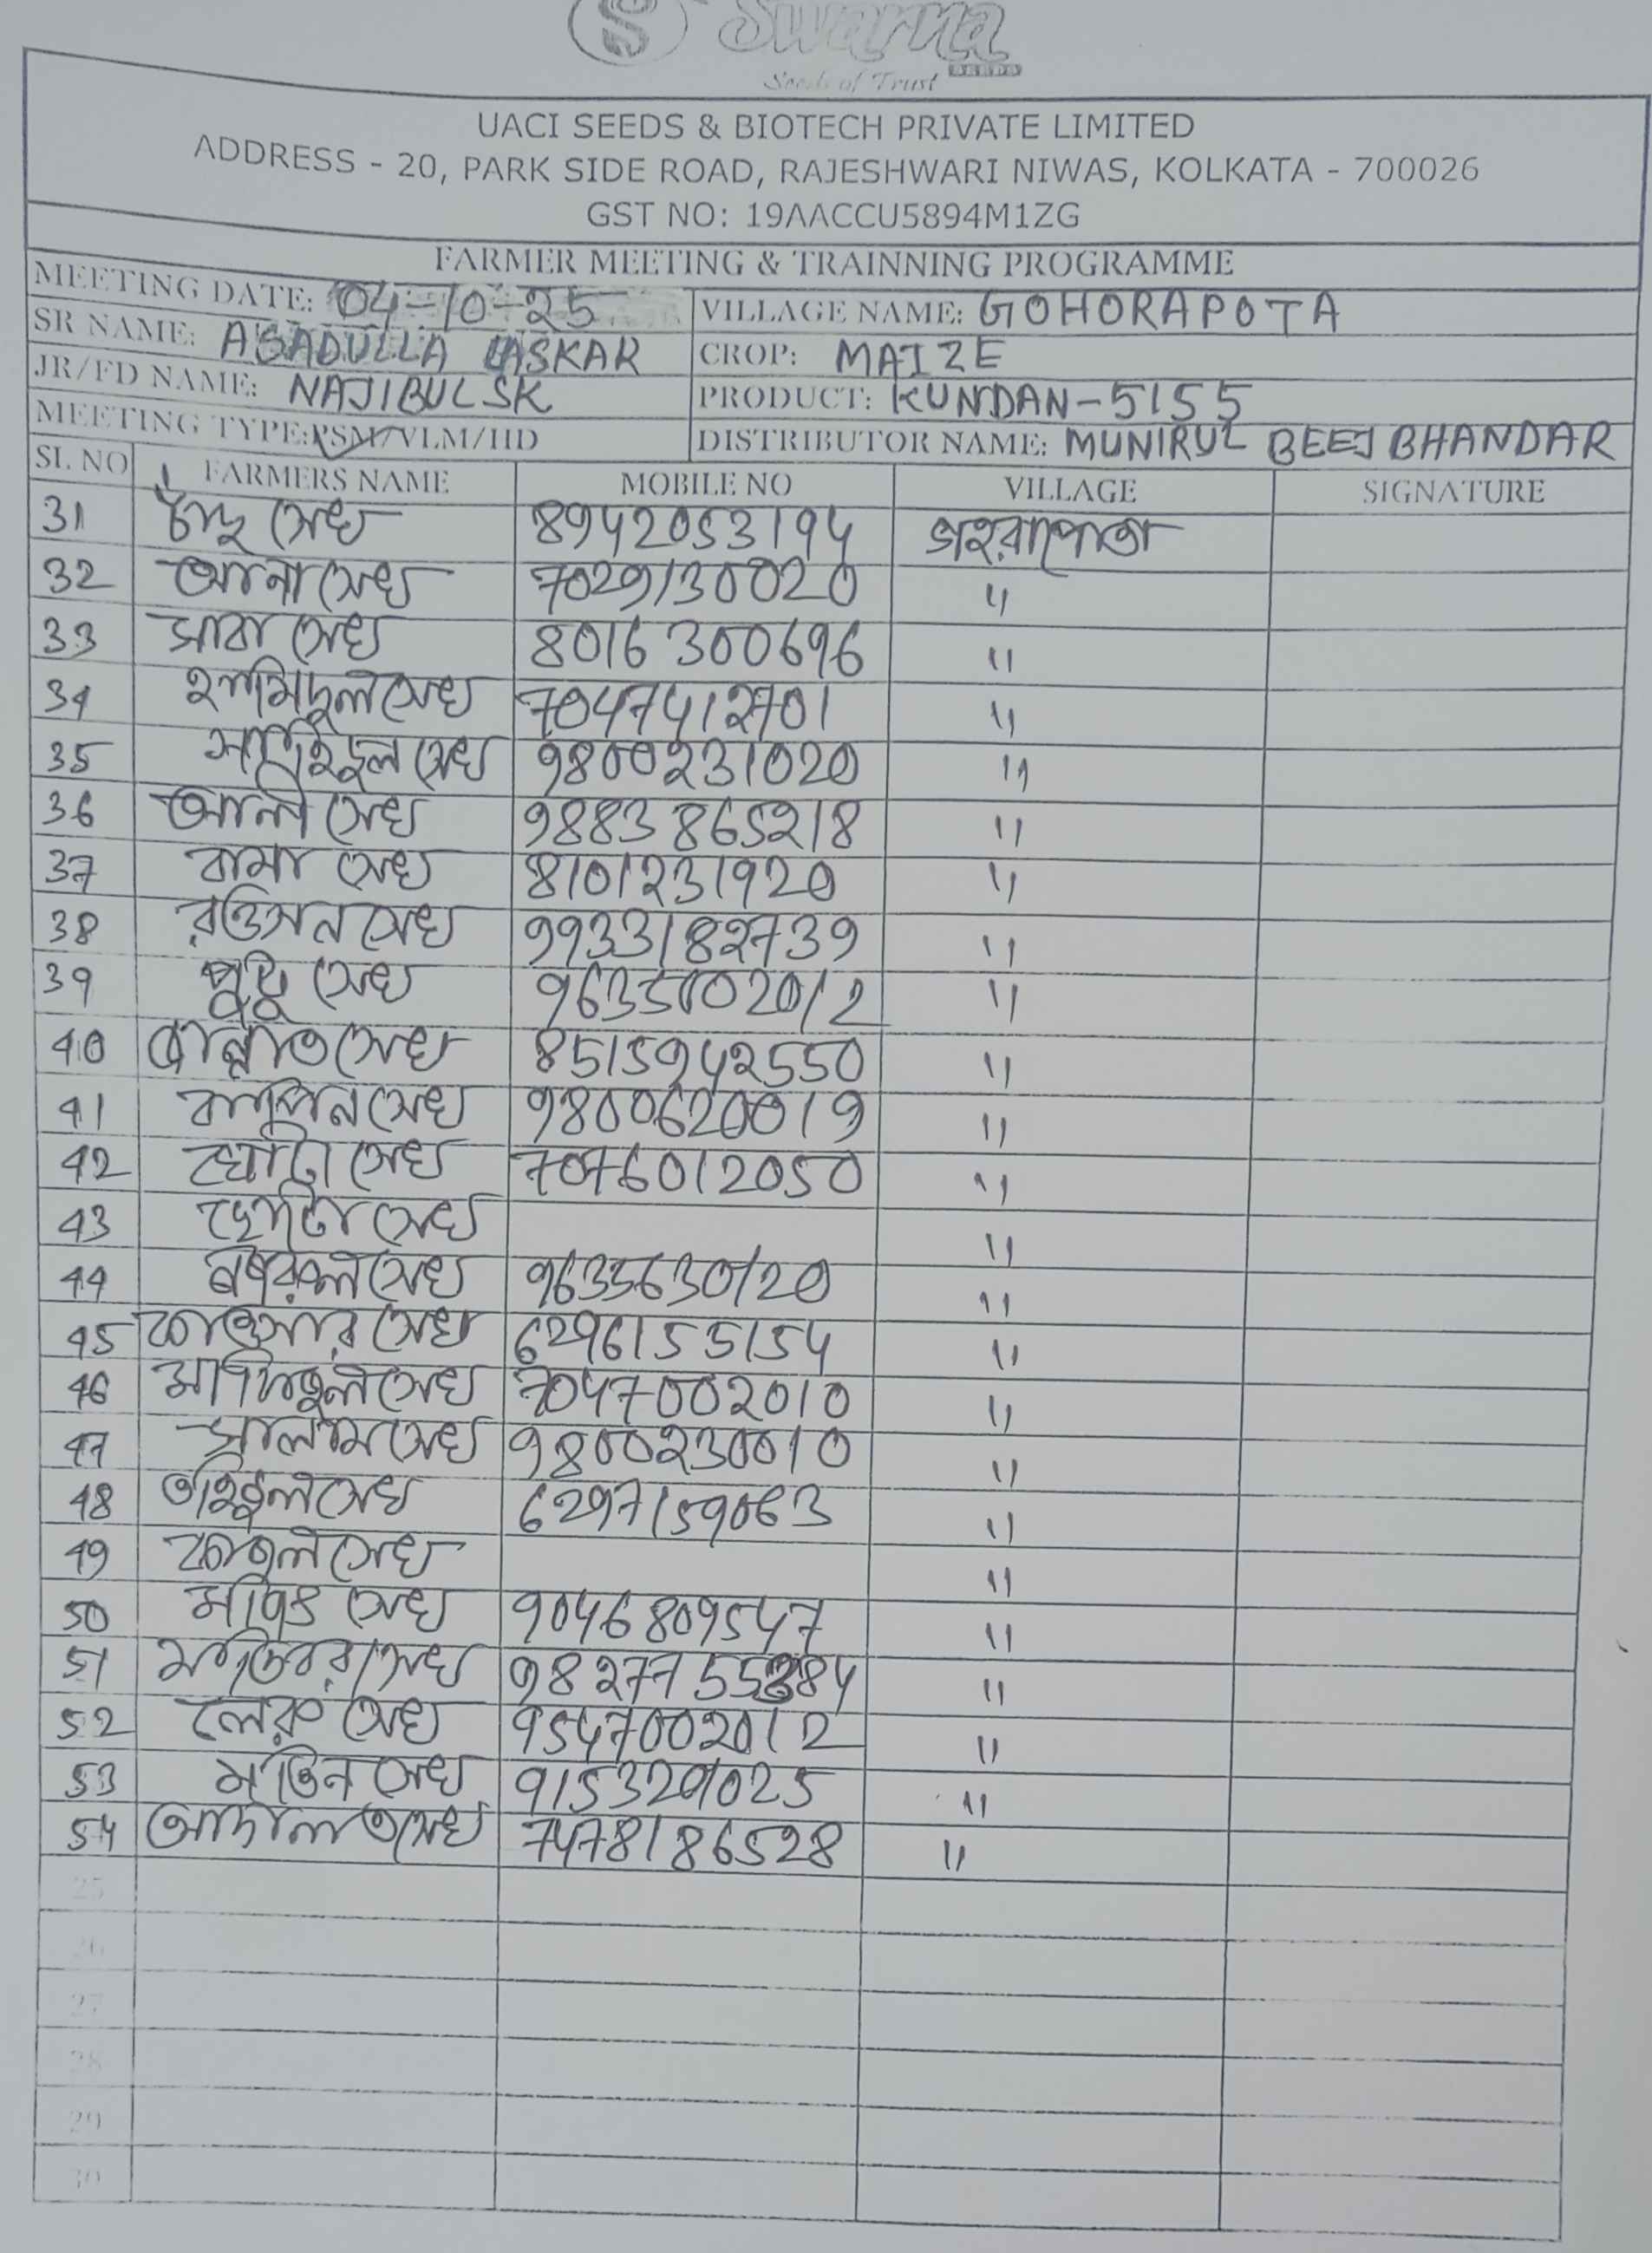 Swarna
SEEDS
Seeds of Trust
UACI SEEDS & BIOTECH PRIVATE LIMITED
ADDRESS - 20, PARK SIDE ROAD, RAJESHWARI NIWAS, KOLKATA - 700026
GST NO: 19AACCU5894M1ZG
FARMER MEETING & TRAINNING PROGRAMME
MEETING DATE: 04-10-25 VILLAGE NAME: GOHORAPOTA
SR NAME: ASADULLA LASKAR CROP: MAIZE
JR/FD NAME: NAJIBUL SK PRODUCT: KUNDAN-5155
MEETING TYPE: PSM/VLM/HD DISTRIBUTOR NAME: MUNIRUL BEEJ BHANDAR
SL NO FARMERS NAME MOBILE NO VILLAGE SIGNATURE
31 চাঁদু সেখ 8942053194 গহরাপোতা
32 আনা সেখ 7029130020 "
33 সাবা সেখ 8016300696 "
34 হামিদুল সেখ 7047412701 "
35 সাহিদুল সেখ 9800231020 "
36 আলী সেখ 9883865218 "
37 বামা সেখ 8101231920 "
38 রওসন সেখ 9933182739 "
39 সেখ "
40 সেখ 8515942550 "
41 সেখ 9800620019 "
42 সেখ 7076012050 "
43 ছোটো সেখ "
44 সেখ 9635630120 "
45 কাওসার সেখ 6296155154 "
46 সেখ 7047002010 "
47 সালাম সেখ 9800230010 "
48 তহিদুল সেখ 6297159063 "
49 সেখ "
50 সেখ 9046809547 "
51 সেখ "
52 সেখ 9547002012 "
53 মতিন সেখ 9153291025 "
54 আদালত সেখ 7478186528 "
25
26
27
28
29
30